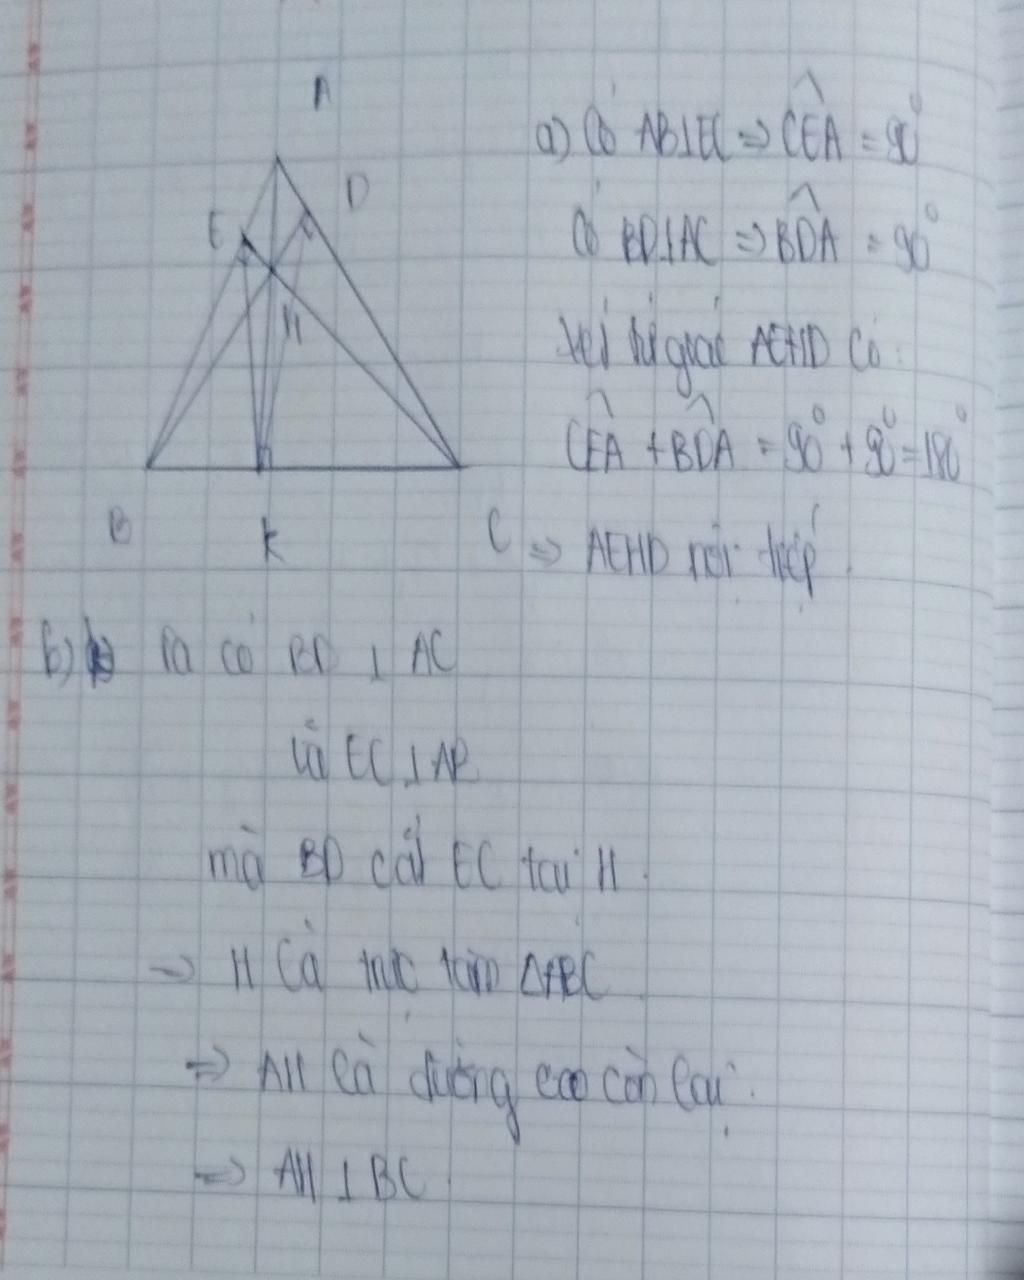 A
D
E
H
B
K
C
a) Có AB⊥EC => CEA = 90°
Có BD⊥AC => BDA = 90°
Xét tứ giác AEHD có:
CEA + BDA = 90° + 90° = 180°
=> AEHD nội tiếp.
b) Ta có BD ⊥ AC
và EC ⊥ AB
mà BD cắt EC tại H.
=> H là trực tâm ΔABC
=> AH là đường cao còn lại.
=> AH ⊥ BC.